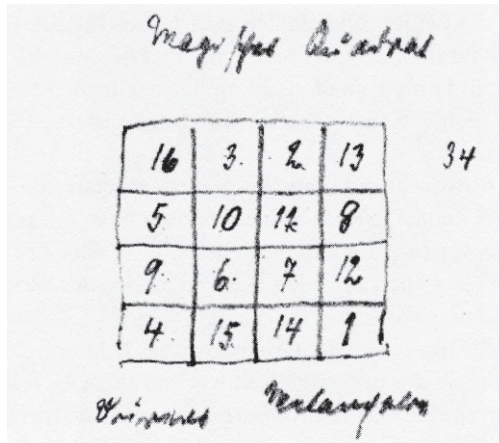 Magisches Quadrat
16 3. 2. 13 34
5. 10 11 8
9. 6. 7 12
4. 15. 14 1
Melancholie